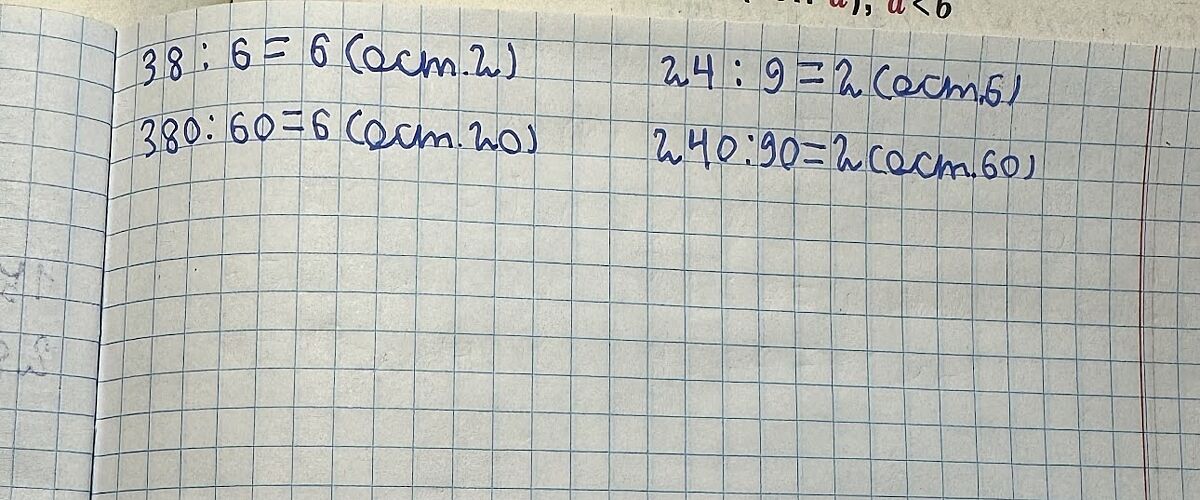 a), a < b
38 : 6 = 6 (ост. 2)
24 : 9 = 2 (ост. 6)
380 : 60 = 6 (ост. 20)
240 : 90 = 2 (ост. 60)